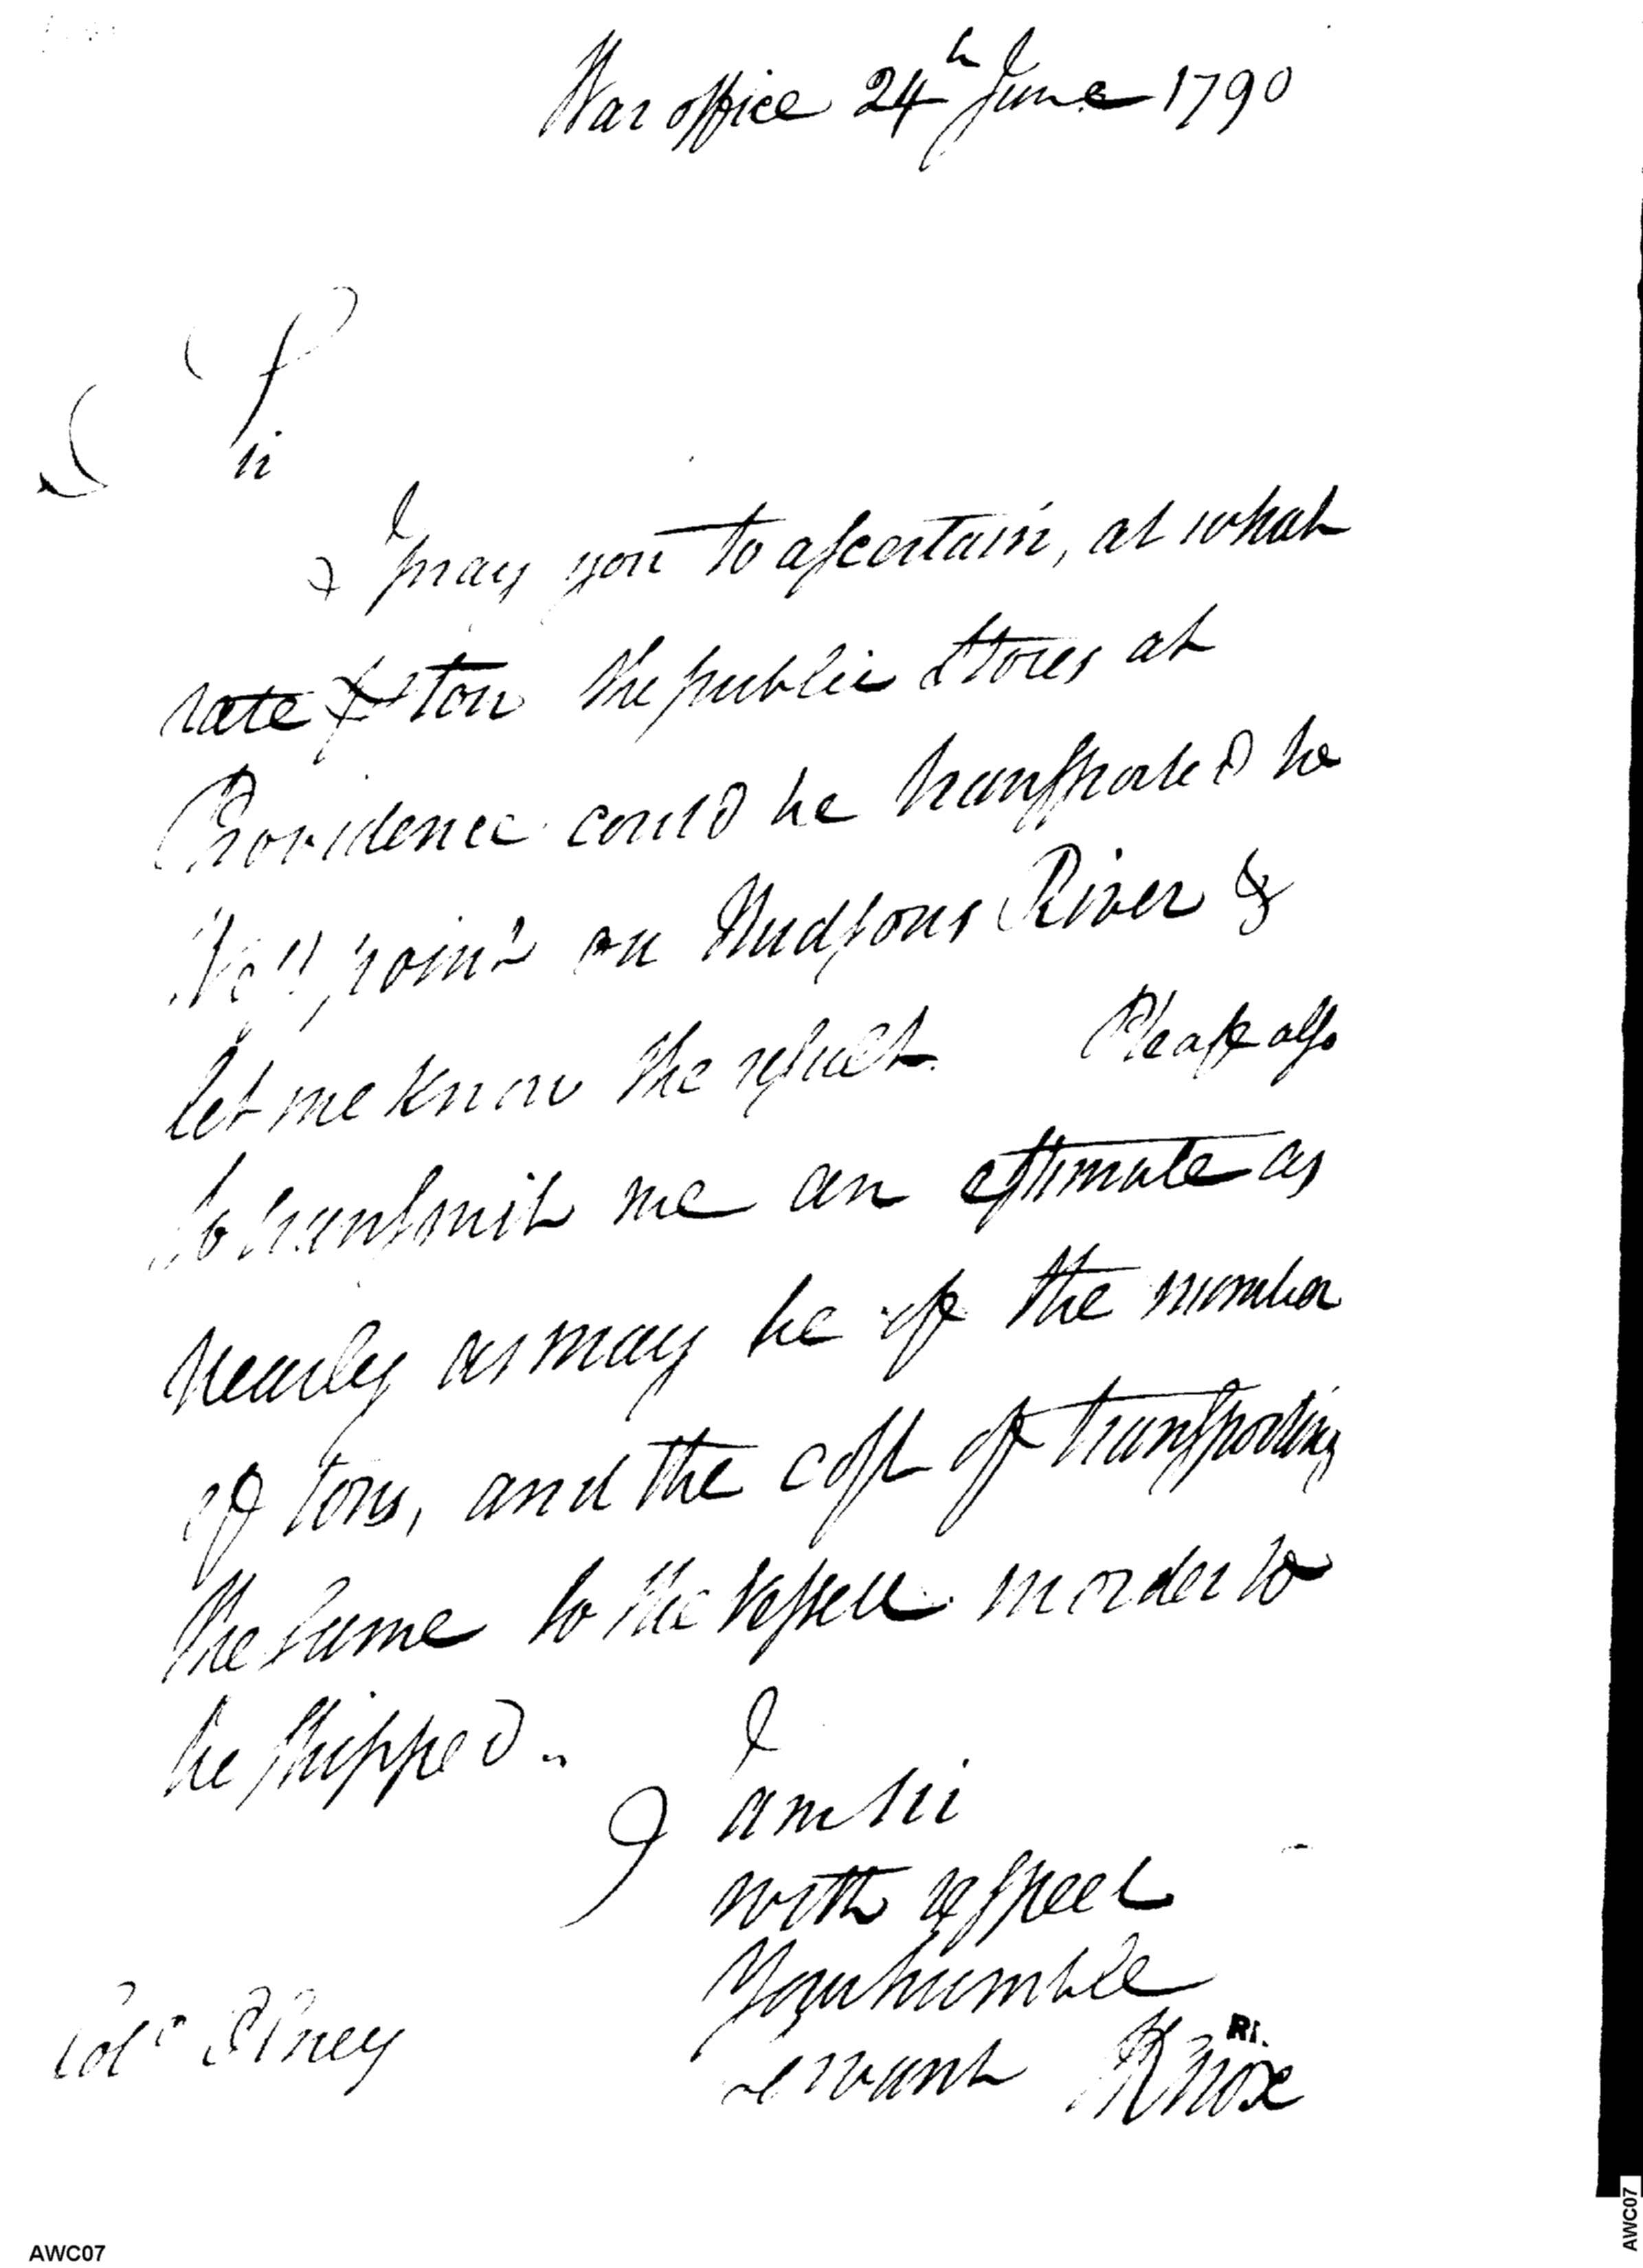 War office 24th June 1790
Sir
I pray you to ascertain, at what
rate ⅌ ton the public Stores at
Providence could be transported to
West point on Hudsons River &
let me know the result. Please also
to transmit me an estimate as
nearly as may be of the number
of tons, and the cost of transporting
the same to the Vessell in order to
be shipped.
I
am Sir
with respect
Your humble
servant HKnox
RI.
Colo Olney
AWC07
AWC07